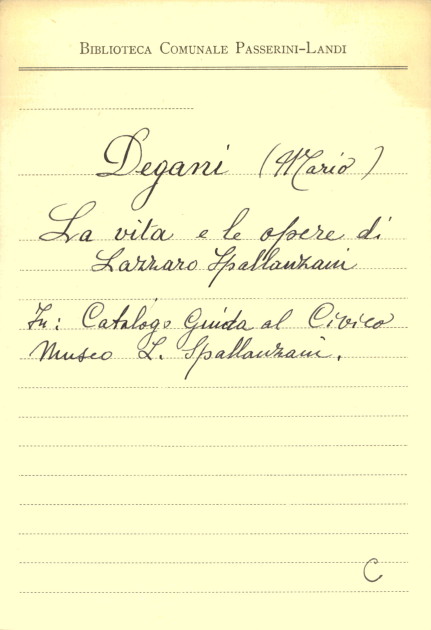 Biblioteca Comunale Passerini-Landi
Degani (Mario)
La vita e le opere di
Lazzaro Spallanzani
In: Catalogo Guida al Civico
Museo L. Spallanzani.
C